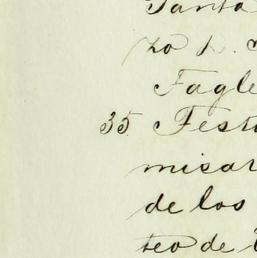 Santa
zo
Fagle
35 Festi
misar
de los
teo de